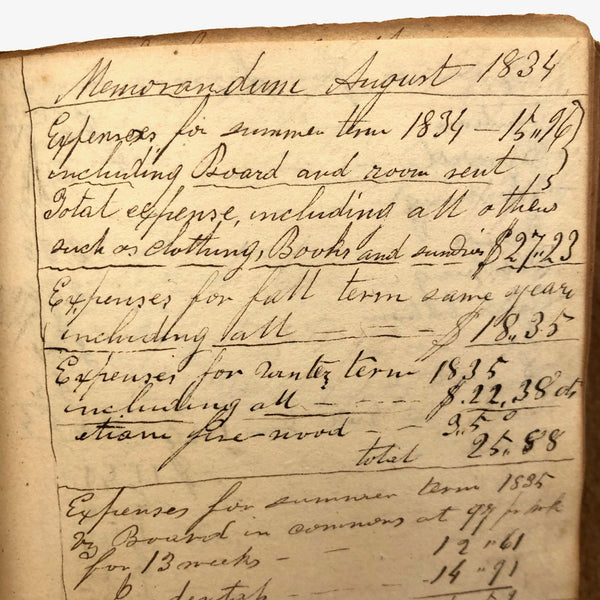 Memorandum August 1834
Expenses for summer term 1834 – 15"96
including Board and room rent
Total expense, including all others
such as clothing, Books and sundries $27"23
Expenses for fall term same year
including all – – – $18.35
Expenses for winter term 1835
including all – – – – $.22,38 cts
etiam fire-wood – – 3,50
total 25,88
Expenses for summer term 1835
Board in commons at 97 pr wk
for 13 weeks – – 12"61
14"91